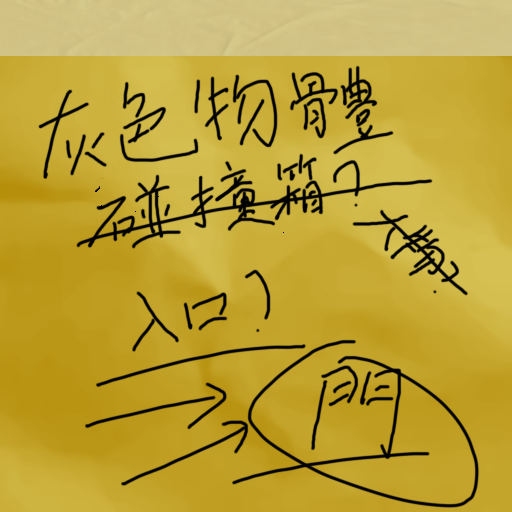 灰色物體
碰撞箱?
入口?
門